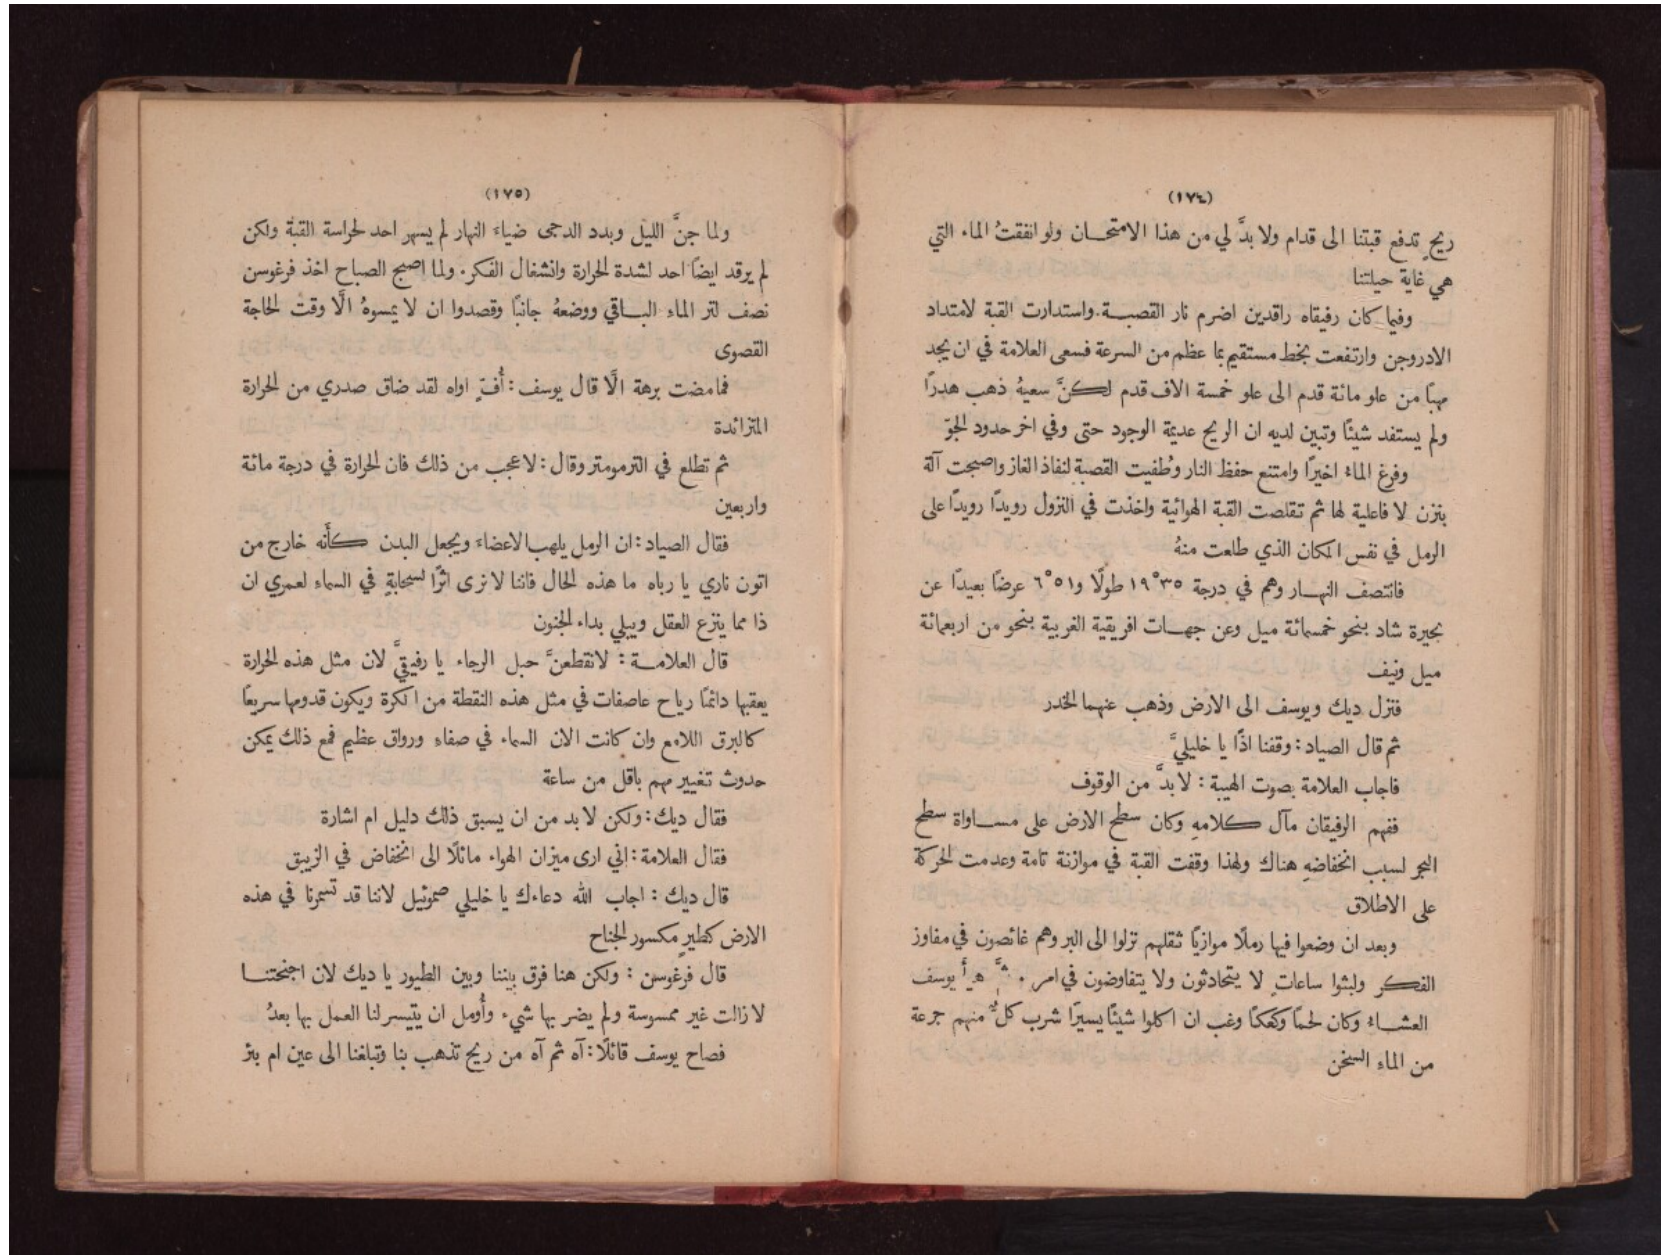 (١٧٤)
ريحٍ تدفع قبتنا الى قدام ولا بدَّ لي من هذا الامتحـان ولو انفقتُ الماء التي
هي غاية حيلتنا
وفيما كان رفيقاه راقدين اضرم نار القصبـة. واستدارت القبة لامتداد
الادروجن وارتفعت بخط مستقيم بما عظم من السرعة فسعى العلامة في ان يجد
مهبًا من علو مائة قدم الى علو خمسة الاف قدم لكنَّ سعيهُ ذهب هدرًا
ولم يستفد شيئًا وتبين لديه ان الريح عديمة الوجود حتى وفي اخر حدود الجوّ
وفرغ الماءُ اخيرًا وامتنع حفظ النار وطُفيت القصبة لنفاذ الغاز واصبحت آلة
بنزن لا فاعلية لها ثم تقلصت القبة الهوائية واخذت في النزول رويدًا رويدًا على
الرمل في نفس المكان الذي طلعت منهُ
فانتصف النهـار وهم في درجة ٣٥ْ ١٩ طولًا و٥١ْ ٦ عرضًا بعيدًا عن
بحيرة شاد بنحو خمسمائة ميل وعن جهـات افريقية الغربية بنحو من اربعمائة
ميل ونيف
فنزل ديك ويوسف الى الارض وذهب عنهما الخدر
ثم قال الصياد: وقفنا اذًا يا خليليَّ
فاجاب العلامة بصوت الهيبة: لا بدَّ من الوقوف
ففهم الرفيقان مآل كلامهِ وكان سطح الارض على مسـاواة سطح
البحر لسبب انخفاضهِ هناك ولهذا وقفت القبة في موازنة تامة وعدمت الحركة
على الاطلاق
وبعد ان وضعوا فيها رملًا موازيًا ثقلهم نزلوا الى البر وهم غائصون في مفاوز
الفكر ولبثوا ساعاتٍ لا يتحادثون ولا يتفاوضون في امر. ثمَّ هيأَ يوسف
العشـاءَ وكان لحمًا وكعكًا وغب ان اكلوا شيئًا يسيرًا شرب كلٌّ منهم جرعة
من الماءِ السخن
(١٧٥)
ولما جنَّ الليل وبدد الدجى ضياءَ النهار لم يسهر احد لحراسة القبة ولكن
لم يرقد ايضًا احد لشدة الحرارة وانشغال الفكر. ولما اصبح الصباح اخذ فرغوسن
نصف لتر الماء البـاقي ووضعهُ جانبًا وقصدوا ان لا يمسوهُ الَّا وقت الحاجة
القصوى
فما مضت برهة الَّا قال يوسف: أُفٍّ اواه لقد ضاق صدري من الحرارة
المتزائدة
ثم تطلع في الترمومتر وقال: لا عجب من ذلك فان الحرارة في درجة مائة
واربعين
فقال الصياد: ان الرمل يلهب الاعضاءَ ويجعل البدن كأَنه خارج من
اتون ناري يا رباه ما هذه الحال فاننا لا نرى اثرًا لسحابةٍ في السماءِ لعمري ان
ذا مما ينزع العقل ويبلي بداء الجنون
قال العلامـة: لا تقطعنَّ حبل الرجاء يا رفيقيَّ لان مثل هذه الحرارة
يعقبها دائمًا رياح عاصفات في مثل هذه النقطة من الكرة ويكون قدومها سريعًا
كالبرق اللامع وان كانت الان السماء في صفاءِ ورواق عظيم فمع ذلك يمكن
حدوث تغيير مهم باقل من ساعة
فقال ديك: ولكن لا بد من ان يسبق ذلك دليل ام اشارة
فقال العلامة: اني ارى ميزان الهواء مائلًا الى انخفاض في الزيبق
قال ديك: اجاب الله دعاءك يا خليلي صموئيل لاننا قد تسمرنا في هذه
الارض كطيرٍ مكسور الجناح
قال فرغوسن: ولكن هنا فرق بيننا وبين الطيور يا ديك لان اجنحتنـا
لا زالت غير ممسوسة ولم يضر بها شيء وأُومل ان يتيسر لنا العمل بها بعدُ
فصاح يوسف قائلًا: آه ثم آه من ريح تذهب بنا وتبلغنا الى عين ام بئر